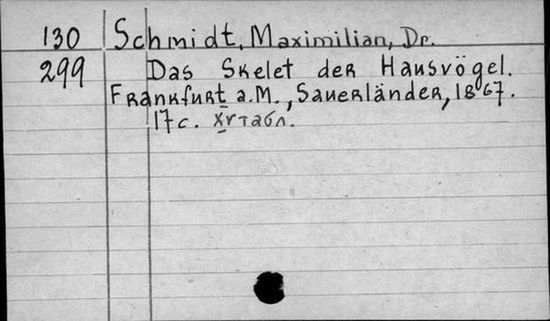 130 Schmidt, Maximilian, Dr.
299 Das Skelet der Hausvögel.
Frankfurt a.M., Sauerländer, 1867.
17 с. XV табл.